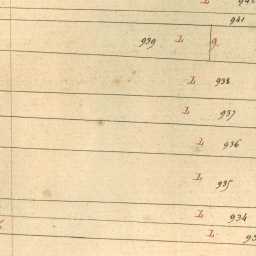 941
939 L g
L 938
L 937
L 936
L 935
L 934
L